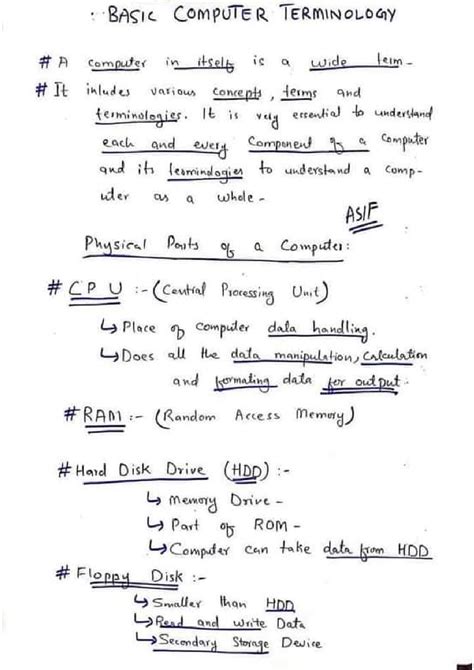 : BASIC COMPUTER TERMINOLOGY
# A computer in itself is a wide term -
# It inludes various concepts, terms and
terminologies. It is very essential to understand
each and every Component of a Computer
and its terminologies to understand a comp-
uter as a whole -
ASIF
Physical Parts of a Computer:
# C P U :- (Central Processing Unit)
↳ Place of computer data handling.
↳ Does all the data manipulation, Calculation
and formating data for output.
# RAM :- (Random Access Memory)
# Hard Disk Drive (HDD) :-
↳ Memory Drive -
↳ Part of ROM -
↳ Computer can take data from HDD
# Floppy Disk :-
↳ Smaller than HDD
↳ Read and write Data
↳ Secondary Storage Device